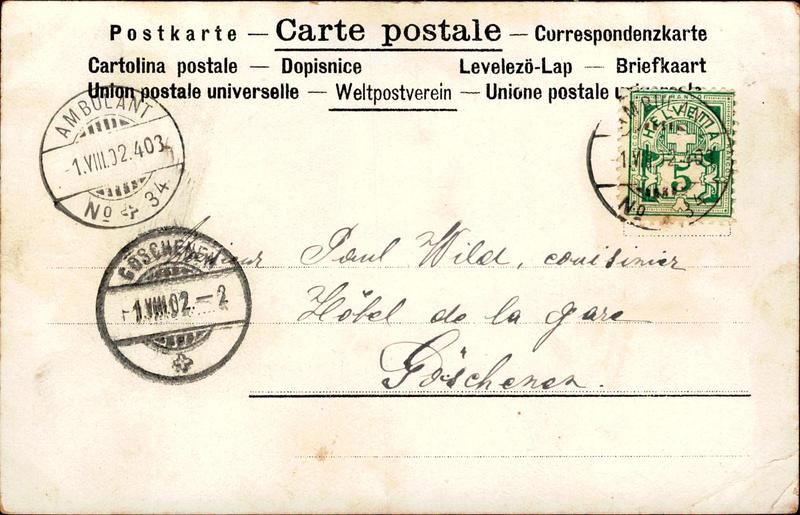 Postkarte — Carte postale — Correspondenzkarte
Cartolina postale — Dopisnice Levelező-Lap — Briefkaart
Union postale universelle — Weltpostverein — Unione postale universale
AMBULANT
-1.VIII.02.403
No 34
HELVETIA
5
1.VIII.02.403
No 34
GÖSCHENEN
-1.VIII.02.-2
Paul Wild, couisinier
Hôtel de la gare
Göschenen.